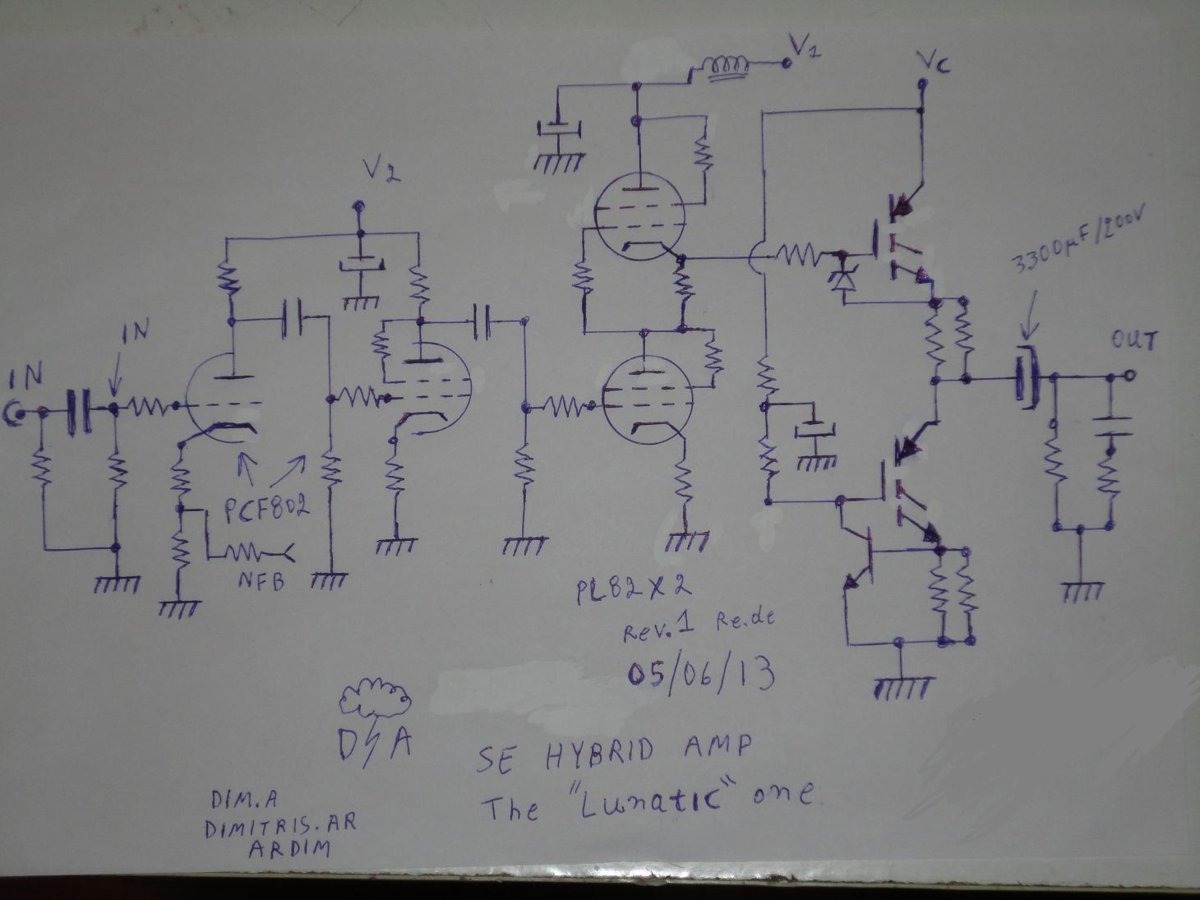 V1
VC
V2
3300μF/200V
IN
OUT
IN
PCF802
NFB
PL82X2
Rev.1 Re.de
05/06/13
D A
SE HYBRID AMP
The "Lunatic" one.
DIM.A
DIMITRIS.AR
ARDIM